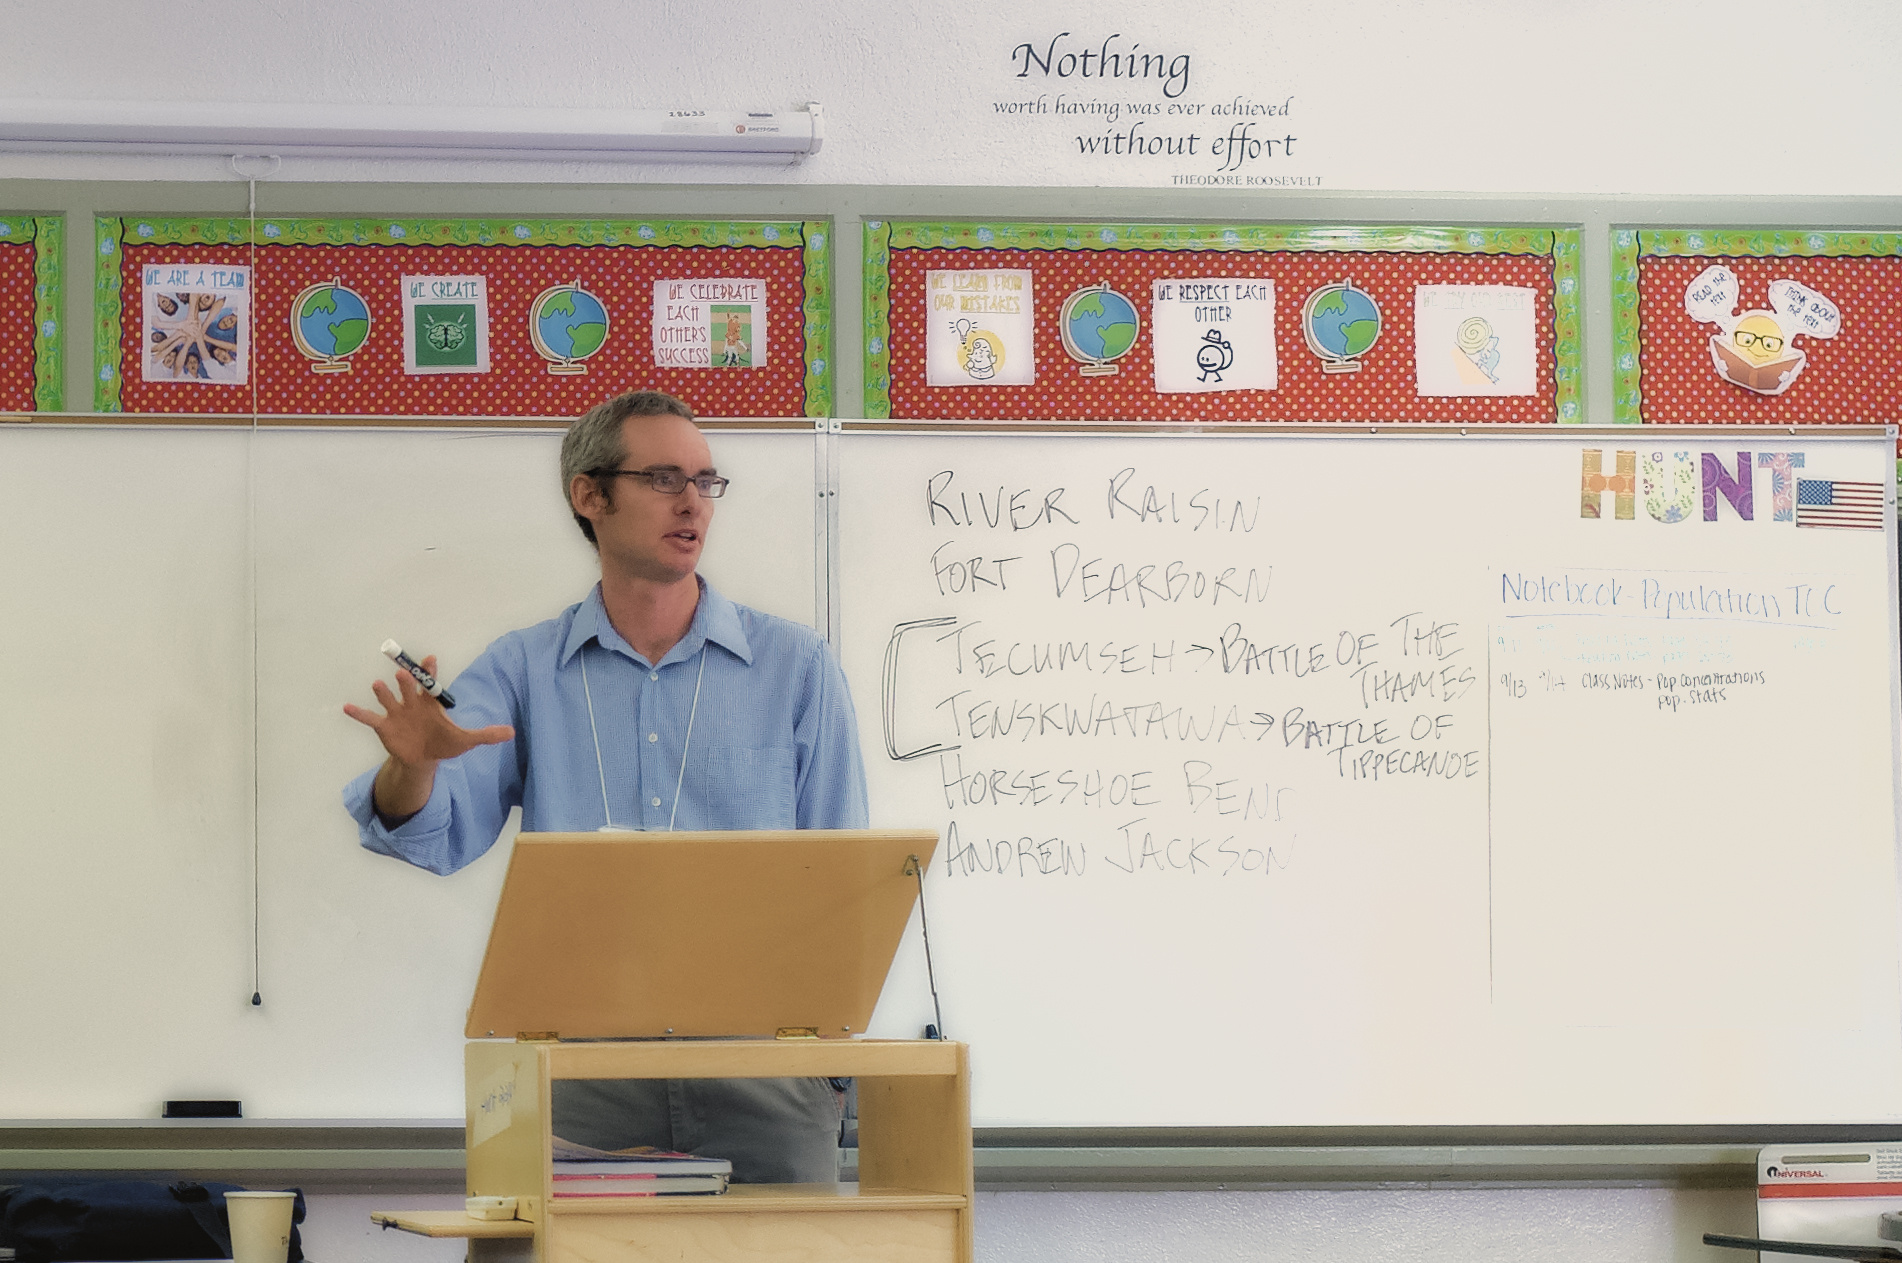 Nothing
worth having was ever achieved
without effort
THEODORE ROOSEVELT
28633
BRETFORD
WE ARE A TEAM
WE CREATE
WE CELEBRATE
EACH
OTHERS
SUCCESS
WE LEARN FROM
OUR MISTAKES
WE RESPECT EACH
OTHER
READ THE
TEXT
THINK ABOUT
THE TEXT
HUNT
RIVER RAISIN
FORT DEARBORN
TECUMSEH → BATTLE OF THE
THAMES
TENSKWATAWA → BATTLE OF
TIPPECANOE
HORSESHOE BEND
ANDREW JACKSON
Notebook - Population TOC
9/13 9/14 Class Notes - Pop Concentrations
pop. stats
EXPO
UNIVERSAL